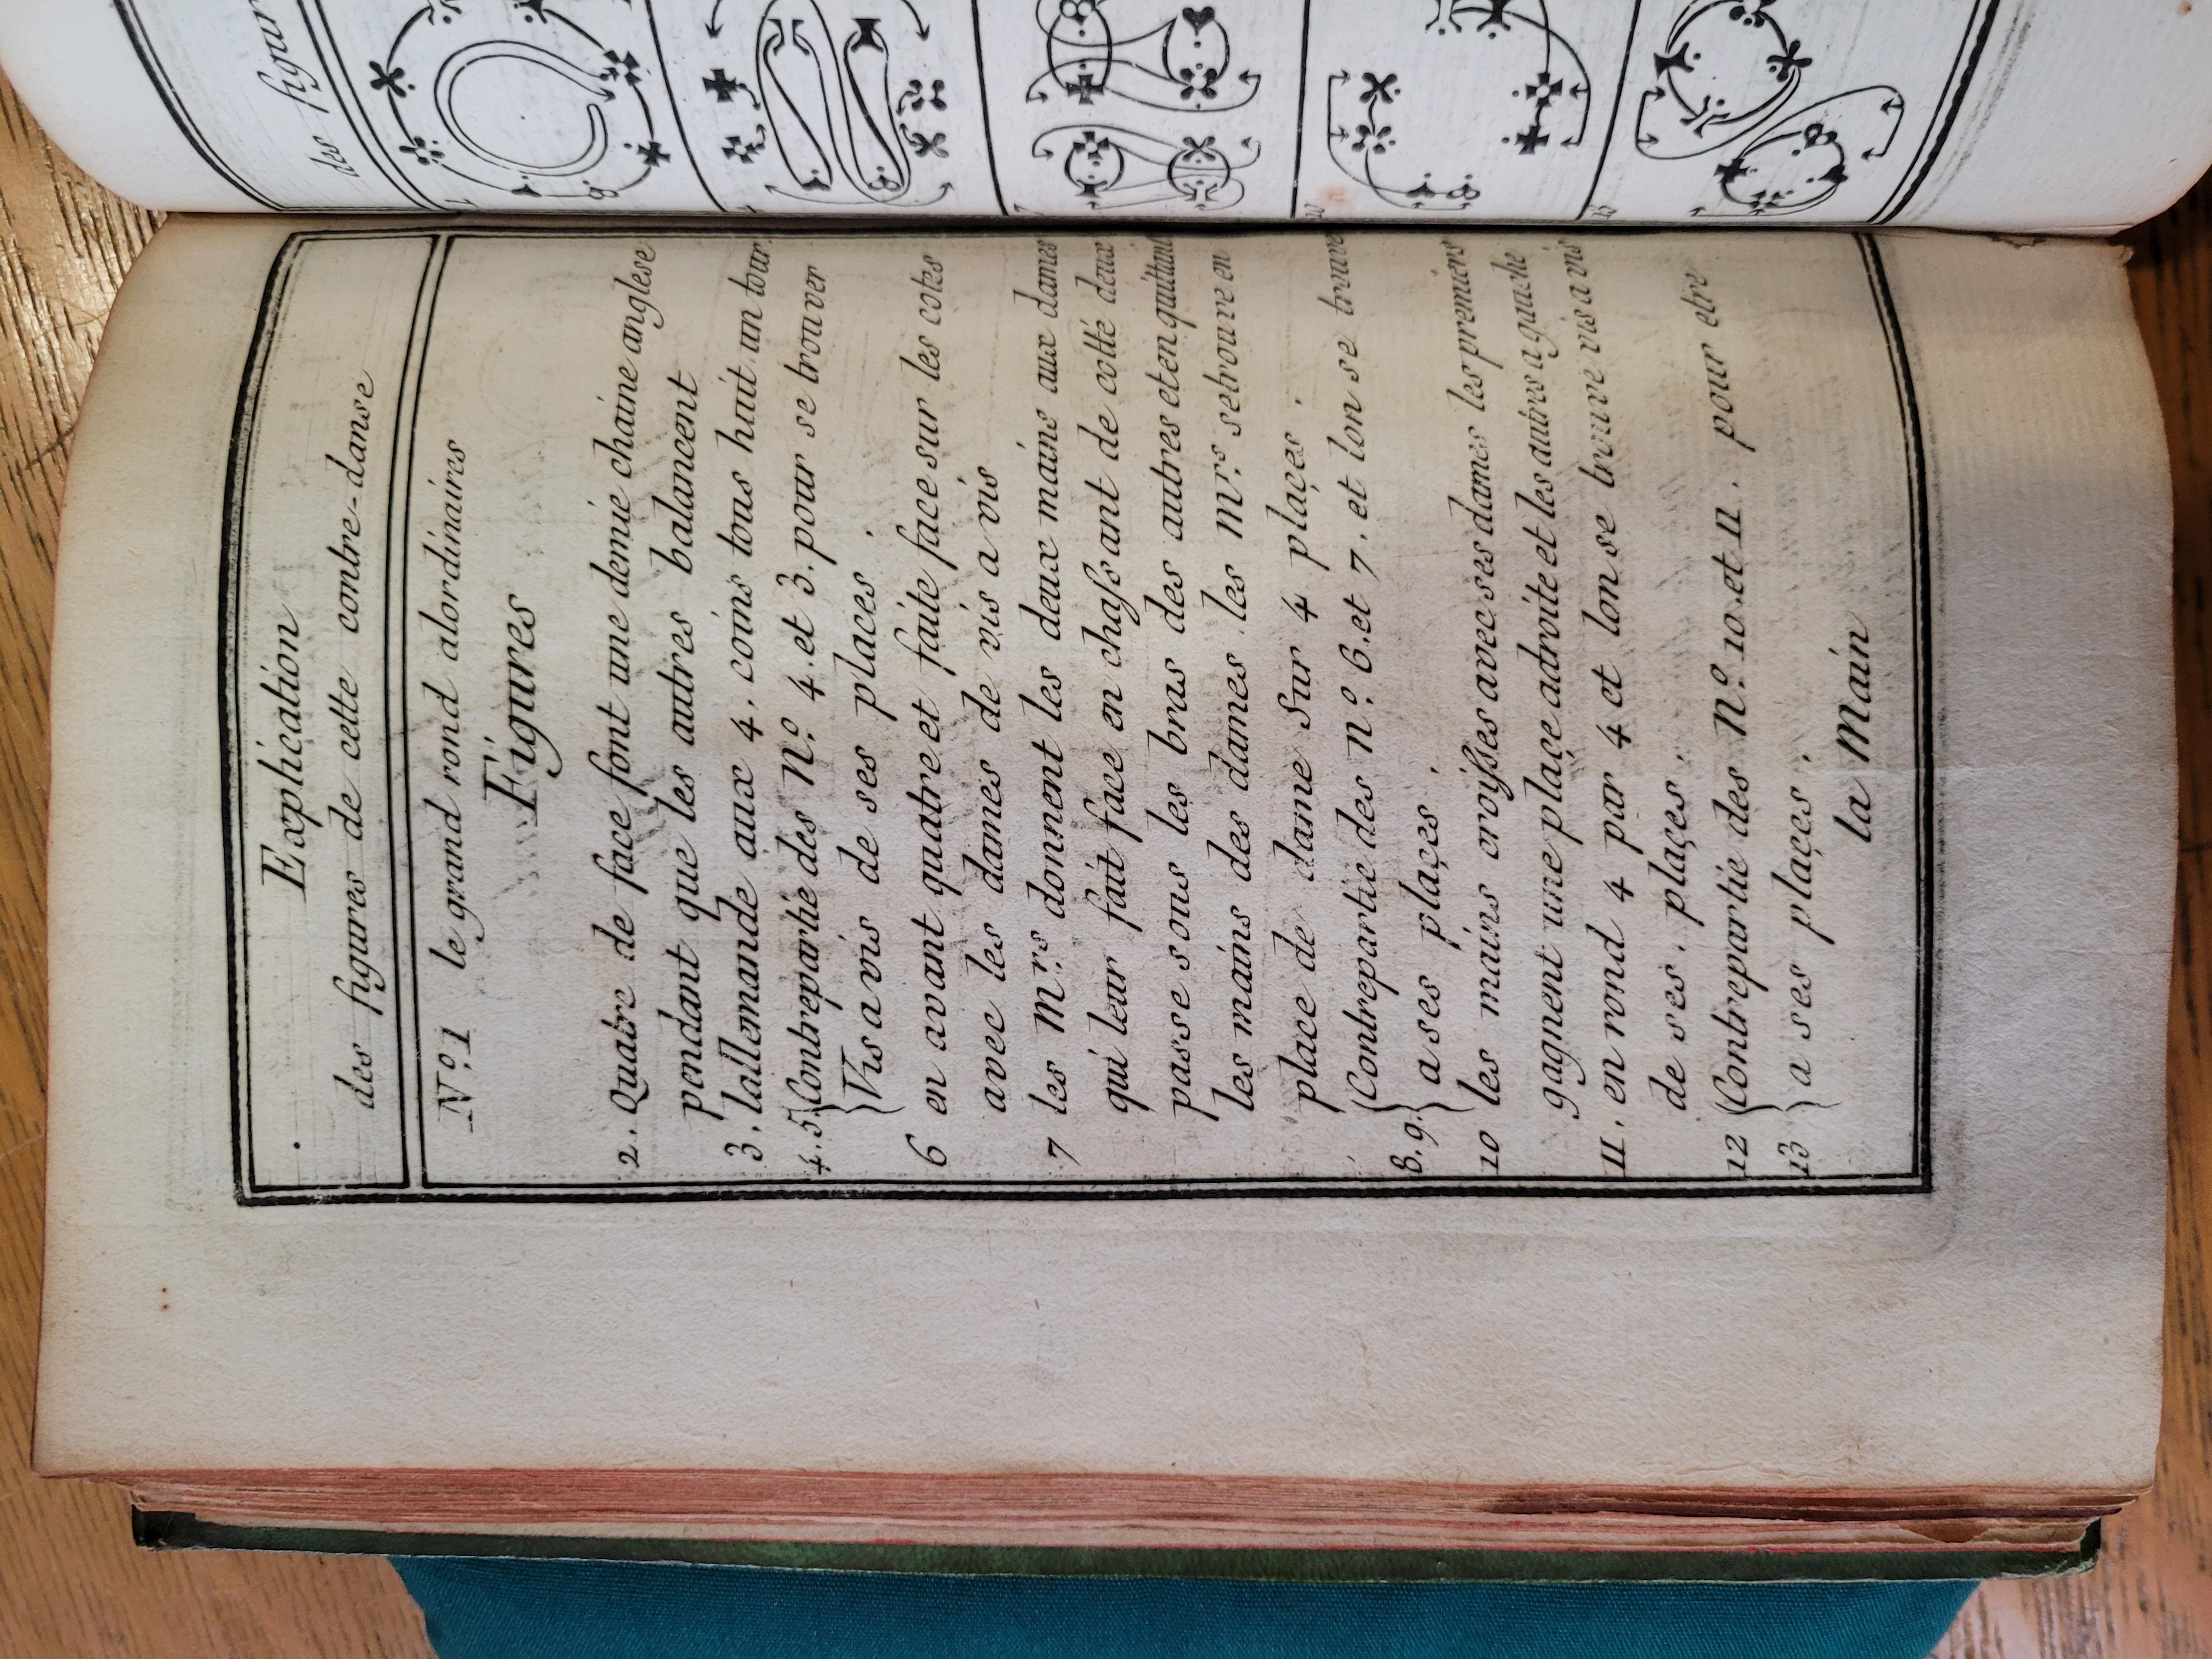 Explication
des figures de cette contre-danse
N.º 1 le grand rond alordinaires
Figures
2. Quatre de face font une demie chaine anglese
pendant que les autres balancent
3. lallemande aux 4. coins tous huit un tour.
4. 5. Contrepartie des N.º 4. et 3. pour se trouver
Vis a vis de ses places.
6 en avant quatre et faite face sur les cotes
avec les dames de vis a vis
7 les M.rs donnent les deux mains aux dames
qui leur fait face en chaſsant de cotté deux
passe sous les bras des autres et en quittant
les mains des dames les M.rs se trouve en
place de dame Sur 4 plaçes.
8. 9. Contrepartie des N.º 6. et 7. et lon se trouve
a ses plaçes.
10 les mains croiſses avec ses dames les premiers
gagnent une plaçe adroite et les autres a gauche
11. en rond 4 par 4 et lon se trouve vis a vis
de ses. plaçes.
12 Contrepartie des N.º 10. et 11. pour etre
13 a ses plaçes.
la Main
des figur